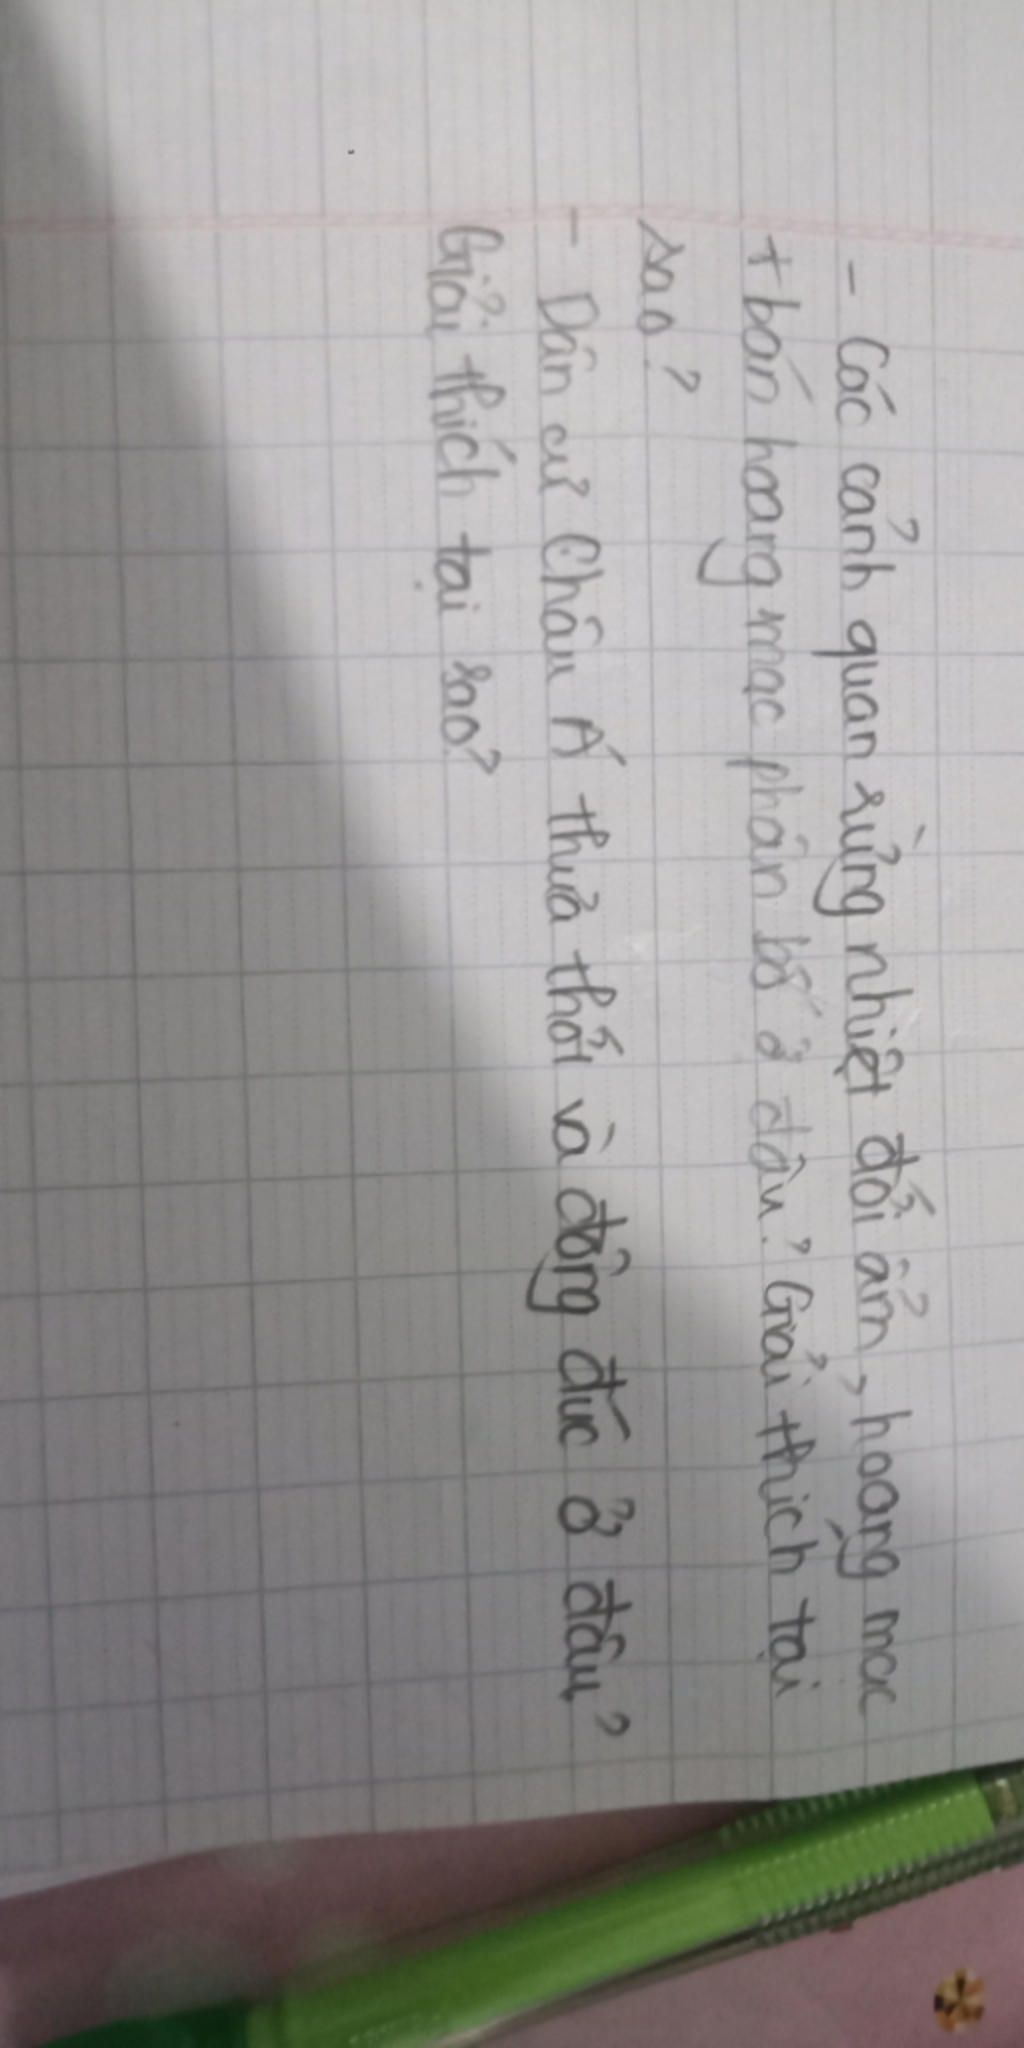 - Các cảnh quan rừng nhiệt đới ẩm, hoang mạc
+ bán hoang mạc phân bố ở đâu? Giải thích tại
sao?
- Dân cư Châu Á thưa thớt và đông đúc ở đâu?
Giải thích tại sao?